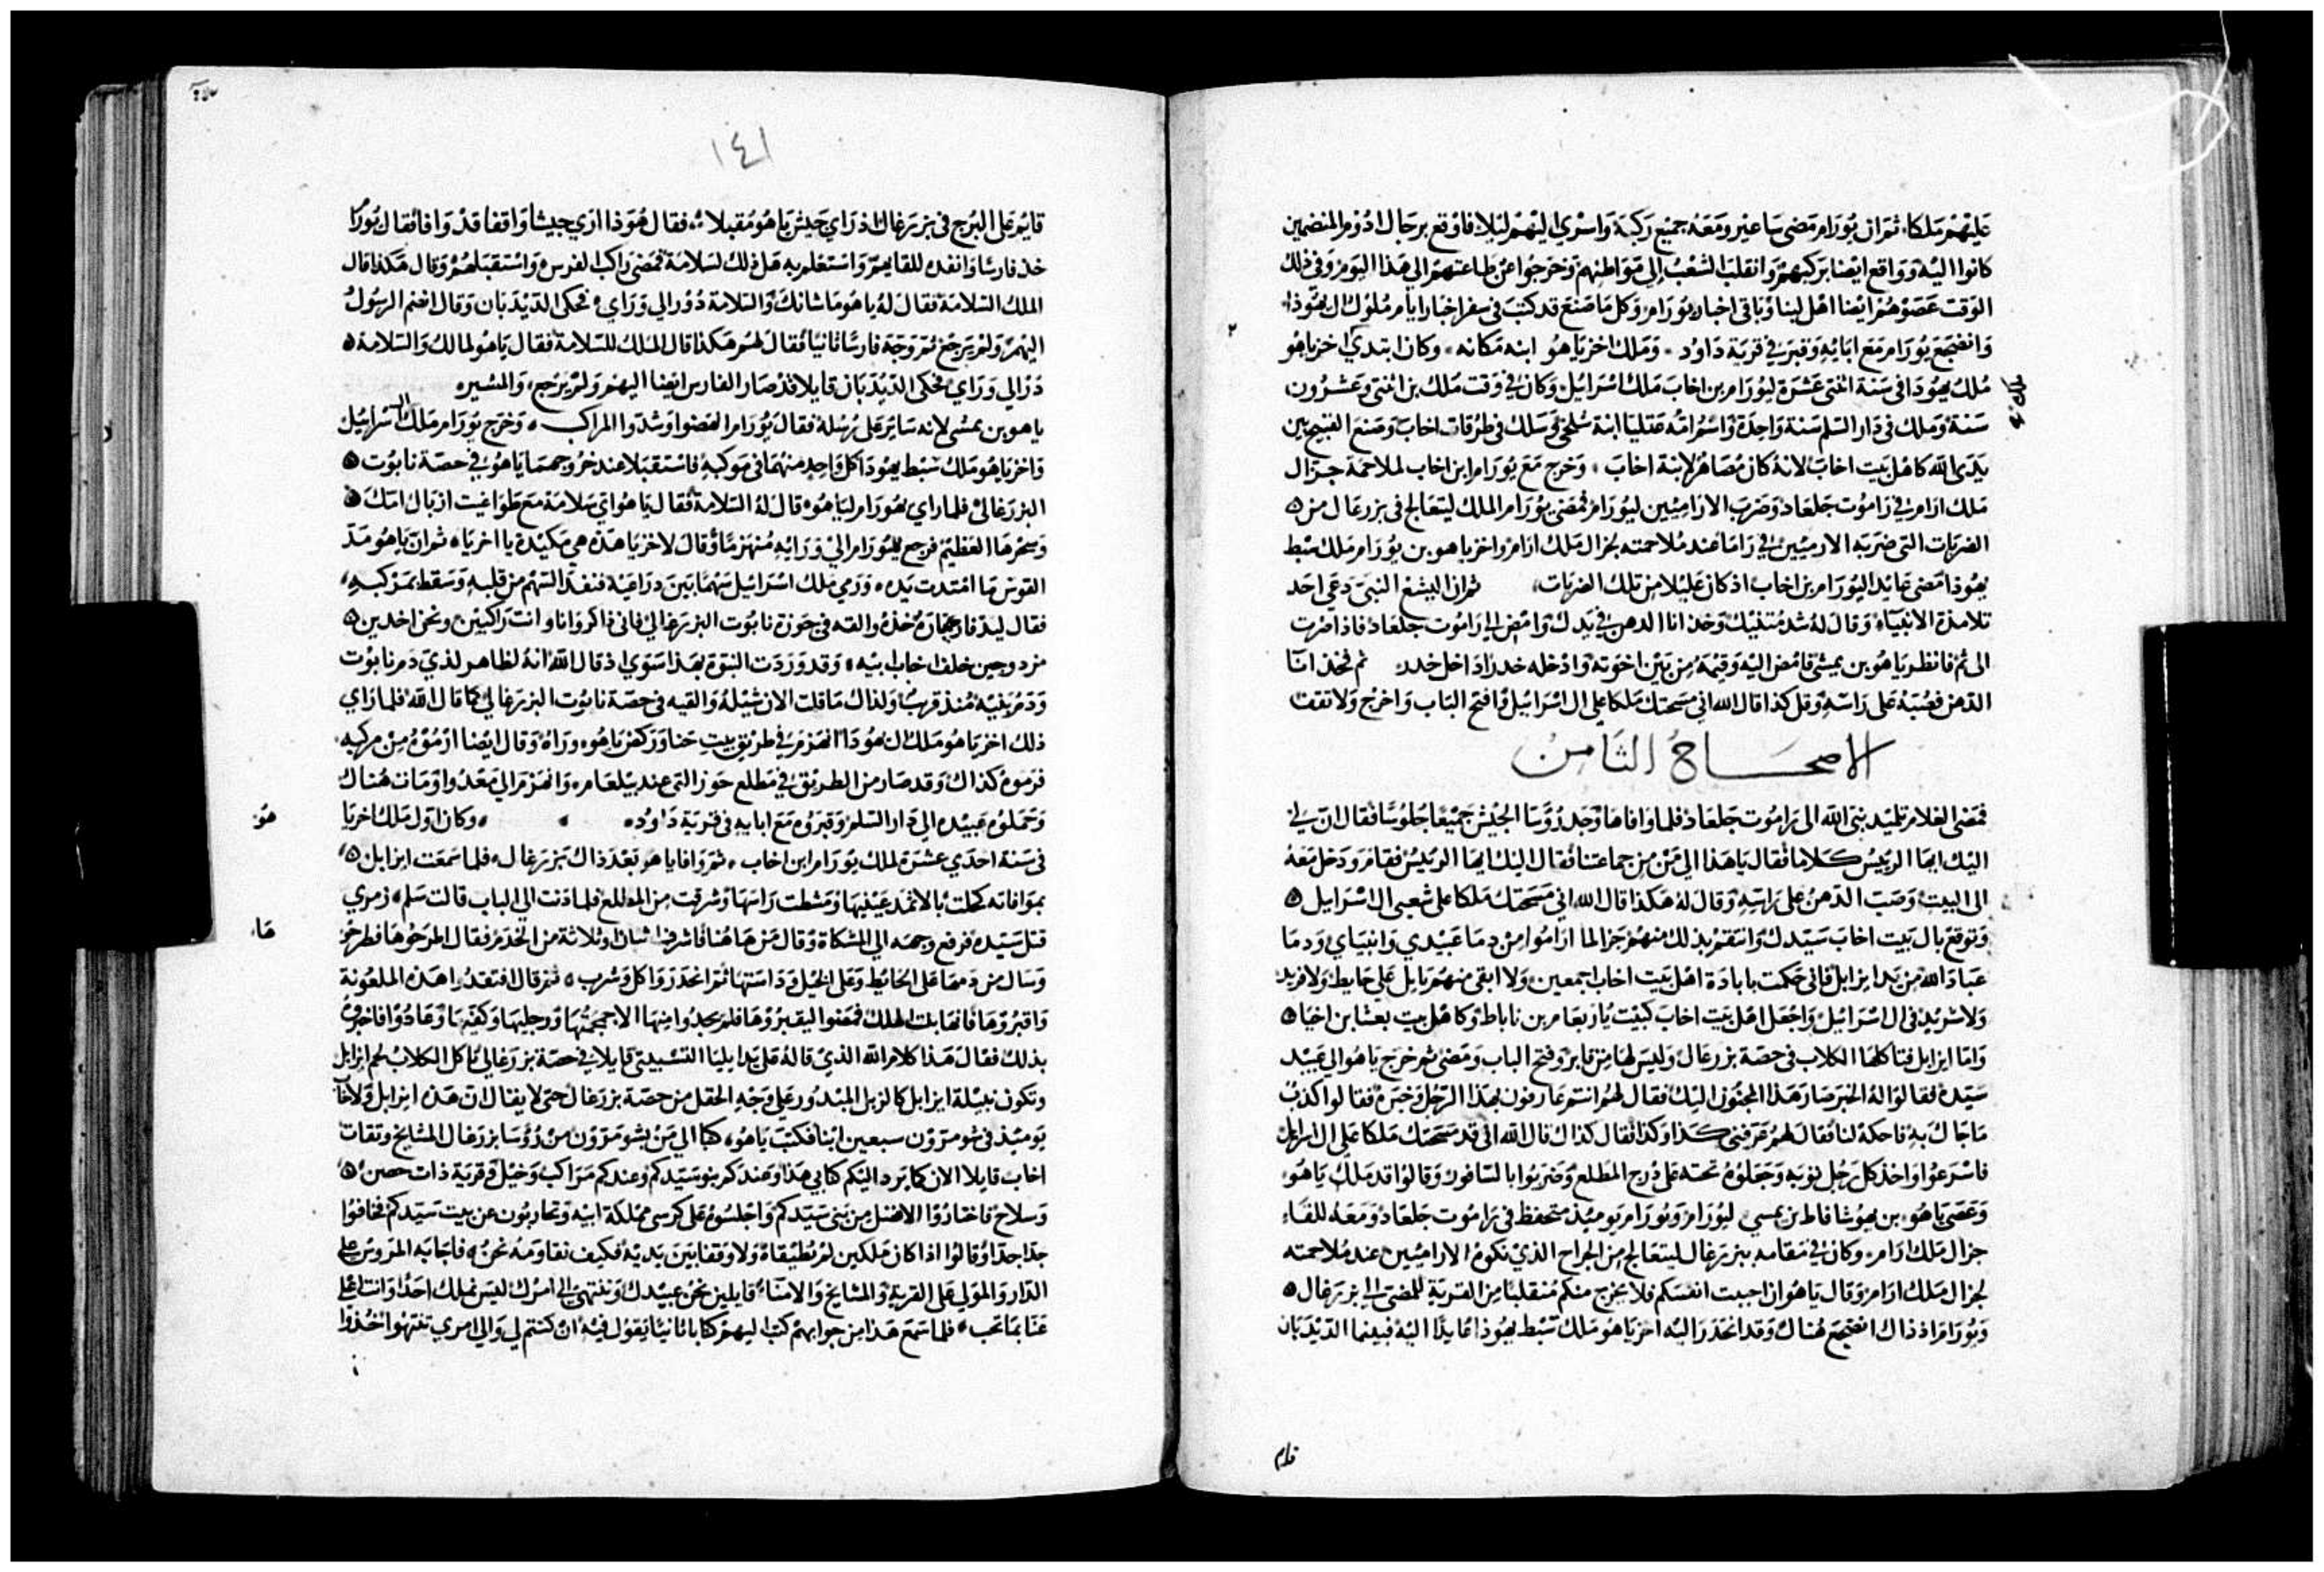 عليهم ملكاء ثم ان يورام مضى ساعير ومعه جميع ركبه واسري اليهم ليلا فاوقع برجال ادوم المنضمين
كانوا اليه وواقع ايضا بركبهم وانقلب الشعب إلى مواطنهم وخرجوا عن طاعتهم الي هذا اليوم وفي ذلك
الوقت عصوهم ايضا اهل لبنا وباقى اخبار يورام وكل ما صنع قد كتب في سفر اخبار ايام ملوك ال يهوذا
وانضجع يورام مع ابايه وقبر في قرية داود وملك اخزياهو ابنه مكانه وكان ابتدي اخزياهو
ملك يهودا في سنة اثنتى عشرة ليورام بن اخاب ملك اسرائيل وكان في وقت ملك بن اثنتى وعشرون
سنة وملك في دار السلم سنة واحدة واسم امه عتليا ابنة وسلك في طرقات اخاب وصنع القبيح بين
يدى الله كاهل بيت اخاب لانه كان مصاهر لابنة اخاب وخرج مع يورام ابن اخاب لملاحمة جزال
ملك ارام في راموت جلعاد وضرب الاراميين ليورام فمضى يورام الملك ليتعالج في بزرعال من
الضربات التي ضربه الارميين في راما عند ملاحمته لجزال ملك ارام واخزياهو بن يورام ملك سبط
يهوذا مضى عايد اليورام بن اخاب اذ كان عليلا من تلك الضربات ثم ان اليشع النبي دعي احد
تلامذة الانبياء وقال له شد متنيك وخذ انا الدهن في يدك وامض الي راموت جلعاد فاذا صرت
الى ثم فانظر ياهو بن يمشي فامض اليه وقيمه من بين اخوته وادخله خدرا داخل خدر ثم فخذ انآ
الدهن فصبه على راسه وقل كذا قال الله اني مسحتك ملكا علي ال اسرائيل وافتح الباب واخرج ولا تقف
الاصحاح الثامن
فمضى الغلام تلميذ نبي الله الى راموت جلعاد فلما وافاها وجد رؤسا الجيش جميعا جلوسا فقال ان لي
اليك ايها الرييس كلاما فقال ياهذا الي من من جماعتنا فقال اليك ايها الرييس فقام ودخل معه
الى البيت وصب الدهن على راسه وقال له هكذا قال الله اني مسحتك ملكا على شعبي ال اسرايل
وتوقع بال بيت اخاب سيدك وانتقم بذلك منهم جزا لما اراموا من دما عبيدي وانبياي ودما
عباد الله من يد ايزابل فاني حكمت بابادة اهل بيت اخاب اجمعين ولا ابقي منهم بايل علي حايط ولا فريد
ولا شريد في ال اسرائيل واجعل اهل بيت اخاب كبيت ياربعام بن ناباط وكاهل بيت بعشا بن اخيا
واما ايزابل فتاكلها الكلاب في حصة بزرعال وليس لها من قابر وفتح الباب ومضى ثم خرج ياهو الي عبيد
سيده فقالوا له الخبر صار هذا المجنون اليك فقال لهم انتم عارفون بهذا الرجل وخبره فقالوا كذب
ما جاك به فاحكه لنا فقال لهم عرفني كذا وكذا فقال كذاك قال الله اني قد مسحتك ملكا علي ال اسرائيل
فاسرعوا واخذ كل رجل ثوبه وجعلوه تحته على درج المطلع وضربوا بالسافور وقالوا قد ملك ياهو
وعصى ياهو بن يهوشافاط بن يمسي ليورام ويورام يوميذ متحفظ في راموت جلعاد ومعه للقاء
جزال ملك ارام وكان في مقامه ببزرعال ليتعالج من الجراح الذي نكوه الاراميين عند ملاحمته
لجزال ملك ارام وقال ياهو ان احببت انفسكم فلا يخرج منكم منقلبا من القرية للمضي الي بزرعال
ويورام اذ ذاك انضجع هناك وقد انحدر اليه اخزياهو ملك سبط يهوذا عايدا اليه فبينما الديدبان
قايم
١٤١
قايم على البرج في بزرعال اذ راي جيش ياهو مقبلا فقال هوذا اري جيشا واقفا قد وافا فقال يورام
خذ فارسا وانفده للقايهم واستعلم به هل ذلك لسلامة فمضى راكب الفرس واستقبلهم وقال هكذا قال
الملك السلامة فقال له ياهو ما شانك والسلامة در الي وراي فحكى الديدبان وقال انضم الرسول
اليهم ولم يرجع ثم وجه فارسا ثانيا فقال لهم هكذا قال الملك للسلامة فقال ياهو لمالك والسلامة
در الي وراي فحكى الديدبان قايلا قد صار الفارس ايضا اليهم ولم يرجع والمسير
ياهو بن يمشي لانه ساير على رسله فقال يورام انهضوا وشدوا المراكب وخرج يورام ملك ال اسرائيل
واخزياهو ملك سبط يهودا كل واحد منهما في موكبه فاستقبلا عند خروجهما ياهو في حصة نابوت
البزرغالي فلما راي يهورام لياهو قال له السلامة فقال ياهو اي سلامة مع طواغيت ازبال امك
وسحرها العظيم فرجع يورام الي ورايه منهزما وقال لاخزيا هذه هي مكيدة يا اخزيا ثم ان ياهو مد
القوس ما امتدت يده ورمي ملك اسرائيل سهما بين دراعيه فنفد السهم من قلبه وسقط بمركبه
فقال خذه والقه في حوزة نابوت البزرعالي فاني ذاكر وانا وانت راكبين ونحن اخدين
مزدوجين خلف اخاب ابيه وقد وردت النبوة بهذا سوي اذ قال الله انه لظاهر لذي دم نابوت
ودم بنيه منذ قريب ولذاك ما قلت الان شيله والقيه في حصة نابوت البزرعالي كما قال الله فلما راي
ذلك اخزياهو ملك ال يهودا انهزم في طريق بيت حنا وركض ياهو وراه وقال ايضا ارموه من مركبه
فرموه كذاك وقد صار من الطريق في مطلع حوز التي عند بيلعام وانهزم الي مغدوا ومات هناك
وحملوه عبيده الي دار السلم وقبروه مع ابايه في قرية داود وكان اول ملك اخزيا
هو
في سنة احدي عشرة لملك يورام ابن اخاب ثم وافا ياهو بعد ذاك بزرعال فلما سمعت ايزابل
بموافاته كحلت بالاثمد عينيها ومشطت راسها وشرفت من المطلع فلما دنت الي الباب قالت سلم زمري
قتل سيده فرفع وجهه الي المشكاة وقال من هاهنا فاشرف اثنان او ثلاثة من الخدم فقال اطرحوها فطرحو
ها
وسال من دمها على الحايط وعلى الخيل وداستها ثم انحدر واكل وشرب ثم قال افتقدوا هذه الملعونة
واقبروها فانها بنت الملك فمضوا ليقبروها فلم يجدوا منها الا جمجمتها ورجليها وكفيها وعادوا فاخبروه
بذلك فقال هذا كلام الله الذي قاله على يد ايليا التسبيتي قايلا في حصة بزرعالي تاكل الكلاب لحم ايزابل
وتكون نبيلة ايزابل كالزبل المبدور علي وجه الحقل من حصة بزرعال حتى لا يقال ان هذه ايزابل ولاخاب
يوميذ في شومرون سبعين ابنا فكتب ياهو كتبا الي من بشومرون من رؤسا بزرعال المشايخ وثقات
اخاب قايلا الان كما يرد اليكم كتابي هذا وعندكم بنو سيدكم وعندكم مراكب وخيل وقرية ذات حصن
وسلاح فاختاروا الافضل من بني سيدكم واجلسوه على كرسي مملكة ابيه وتحاربون عن بيت سيدكم فخافوا
جدا جدا وقالوا اذا كان ملكين لم تطيقاه ولا وقفا بين يديه فكيف نقاومه نحن فاجابه المروس على
الدار والمولي على القرية والمشايخ والامناء قايلين نحن عبيدك وننتهي الي امرك ليس نملك احدا وانت اعلى
عنا بما تحب فلما سمع هذا من جوابهم كتب اليهم كتابا ثانيا يقول فيه ان كنتم لي والي امري تنتهوا اخذوا